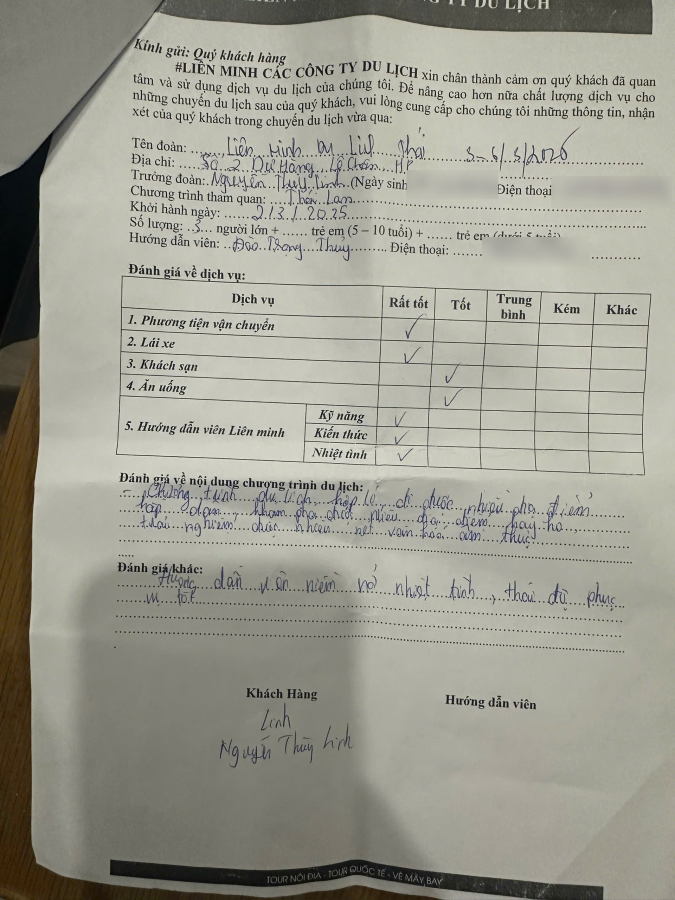 CÔNG TY DU LỊCH
Kính gửi: Quý khách hàng
#LIÊN MINH CÁC CÔNG TY DU LỊCH xin chân thành cảm ơn quý khách đã quan
tâm và sử dụng dịch vụ du lịch của chúng tôi. Để nâng cao hơn nữa chất lượng dịch vụ cho
những chuyến du lịch sau của quý khách, vui lòng cung cấp cho chúng tôi những thông tin, nhận
xét của quý khách trong chuyến du lịch vừa qua:
Tên đoàn: Liên Minh
Địa chỉ: Số 2 Dư Hàng Lê Chân HP
Trưởng đoàn: Nguyễn Thuỳ Linh (Ngày sinh Điện thoại
Chương trình tham quan: Thái Lan
Khởi hành ngày: 2/3/2025
Số lượng: 3 người lớn + ...... trẻ em (5 – 10 tuổi) + ...... trẻ em (dưới 5 tuổi)
Hướng dẫn viên: Đào Trọng Thuỷ Điện thoại: .......
Đánh giá về dịch vụ:
Dịch vụ Rất tốt Tốt Trung bình Kém Khác
1. Phương tiện vận chuyển ✓
2. Lái xe ✓
3. Khách sạn ✓
4. Ăn uống ✓
5. Hướng dẫn viên Liên minh Kỹ năng ✓
Kiến thức ✓
Nhiệt tình ✓
Đánh giá về nội dung chương trình du lịch:
- Chương trình du lịch hợp lý, đi được nhiều địa điểm
hấp dẫn, khám phá được nhiều địa điểm hay ho
trải nghiệm được nhiều nét văn hóa ẩm thực
Đánh giá khác:
Hướng dẫn viên niềm nở nhiệt tình, thái độ phục
vụ tốt
Khách Hàng Hướng dẫn viên
Linh
Nguyễn Thùy Linh
TOUR NỘI ĐỊA - TOUR QUỐC TẾ - VÉ MÁY BAY